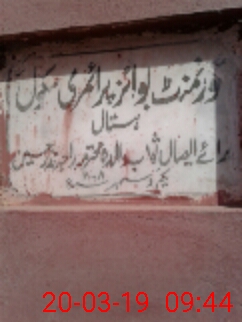 گورنمنٹ بوائز پرائمری سکول
ہستال
برائے ایصال ثواب والدہ محترمہ راجہ
یکم
20-03-19 09:44